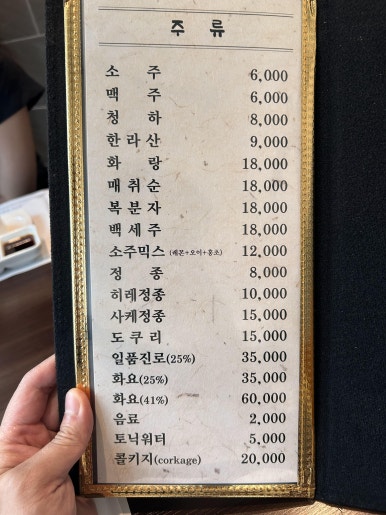 주 류
소 주 6,000
맥 주 6,000
청 하 8,000
한 라 산 9,000
화 랑 18,000
매 취 순 18,000
복 분 자 18,000
백 세 주 18,000
소주믹스 (레몬+오이+홍초) 12,000
정 종 8,000
히레정종 10,000
사케정종 15,000
도 쿠 리 15,000
일품진로(25%) 35,000
화요(25%) 35,000
화요(41%) 60,000
음료 2,000
토닉워터 5,000
콜키지(corkage) 20,000